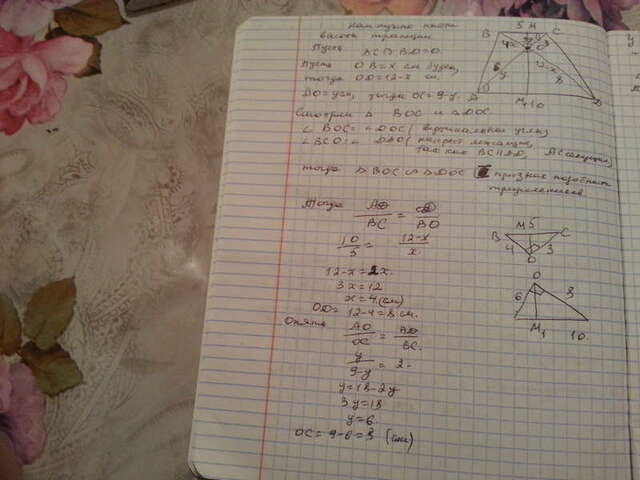 Нам нужно найти
высоту трапеции
Пусть AC∩BD=O.
Пусть OB=x см, 
тогда OD=12-x см.
AO=y см, тогда OC=9-y.
Смотрим Δ BOC и
∠BOC= (вертикальные углы)
∠BCO= (накрест лежащие,
так как BC||AD, AC секущая)
тогда признак подобия
треугольников
Тогда AD/BC = OD/BO
10/5 = 12-x/x
12-x=2x.
3x=12
x=4 (см)
OD=12-4=8 см.
Опять AO/OC = AD/BC.
y/9-y = 2.
y=18-2y
3y=18
y=6.
OC=9-6=3 (см)
B 5 M C
4 3
6 y 12-x 8
A M₁ 10 D
B M 5 C
4 3
O
O
6 8
M₁ 10